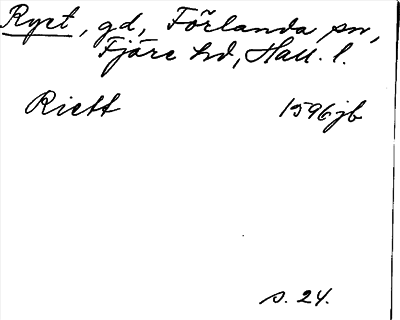 Ryet, gd, Förlanda sn,
Fjäre hd, Hall. l.
Riett 1596 jb
s. 24.